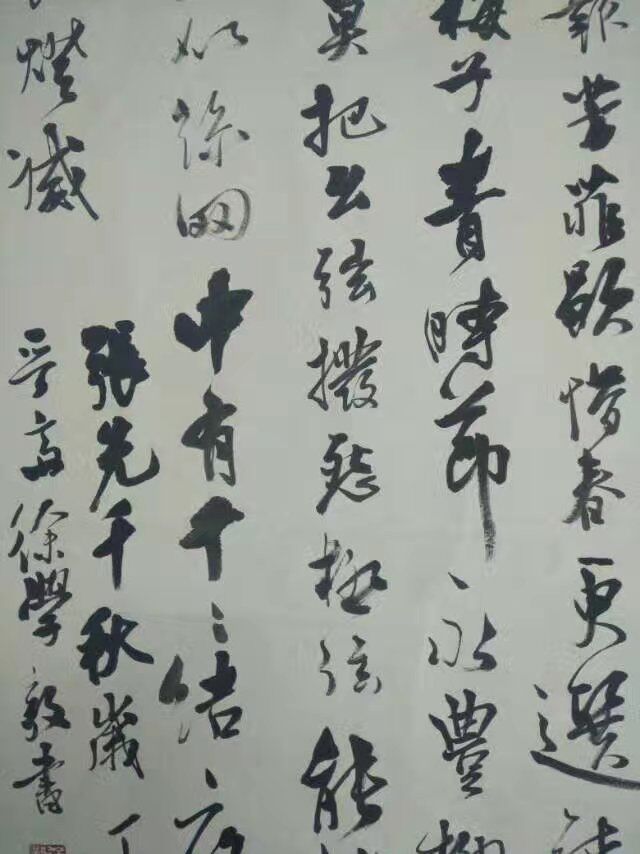 報芳菲歇惜春更選
梅子青時節永豐柳
莫把幺弦撥怨極弦能
似絲网中有千〻結夜
燈滅
張先千秋歲丁
徐學毅書